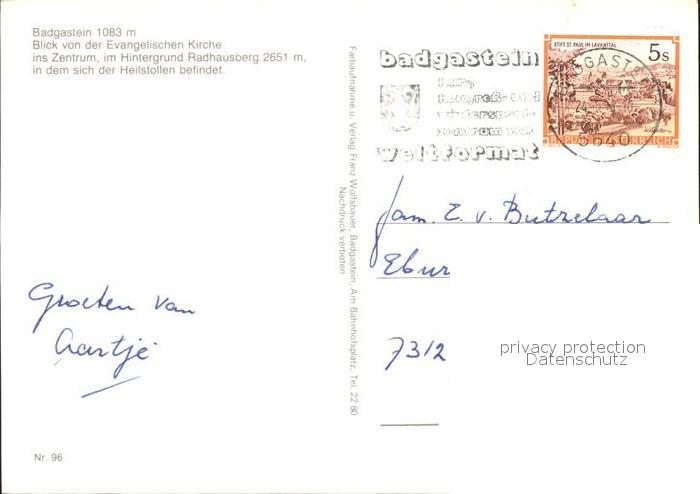 Badgastein 1083 m
Blick von der Evangelischen Kirche
ins Zentrum, im Hintergrund Radhausberg 2651 m,
in dem sich der Heilstollen befindet.
Farbaufnahme u. Verlag Franz Wolfsbauer, Badgastein, Am Bahnhofsplatz, Tel. 22 80
Nachdruck verboten
badgastein
kur-,
kongreß- und
wintersport-
zentrum von
weltformat
STIFT ST. PAUL IM LAVANTTAL
5 S
REPUBLIK ÖSTERREICH
5640
Fam. E. v. Butzelaar
Ebur
7312
Groeten van
Aartje
privacy protection
Datenschutz
Nr. 96